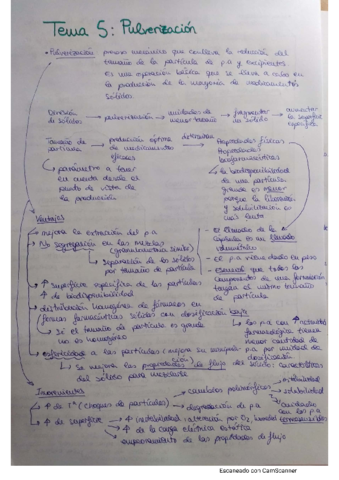 Tema 5: Pulverización
• Pulverización proceso mecánico que conlleva la reducción del
tamaño de la partícula de p.a y excipientes
Es una operación básica que se lleva a cabo en
la producción de la mayoría de medicamentos
sólidos
División de sólidos → pulverización → unidades de menor tamaño → fragmentar un sólido → aumentar la superficie específica
Tamaño de partícula → producción óptima de medicamentos eficaces → Propiedades físicas
Propiedades biofarmacéuticas
→ parámetro a tener
en cuenta desde el
punto de vista de
la producción
→ la biodisponibilidad
de una partícula
grande es menor
porque la liberación
y solubilización es
más lenta
Ventajas
→ mejora la extracción del p.a
→ No segregación en las mezclas
(granulometría similar)
→ separación de los sólidos
por tamaño de partícula
- el llenado de la
cápsula es un llenado
volumétrico
- el p.a viene dado en peso
- esencial que todos los
componentes de una formulación
tengan el mismo tamaño
de partícula
→ ↑ superficie específica de las partículas
→ ↑ de biodisponibilidad
→ distribución homogénea de fármacos en
formas farmacéuticas sólidas con dosificación baja
→ Si el tamaño de partícula es grande
no es homogéneo
→ los p.a con ↑
farmacológica tienen
menor cantidad de
p.a por unidad de
dosificación
→ esfericidad a las partículas (mejora su
→ Se mejora las propiedades de flujo del sólido: características
del sólido para mezclarse
Inconvenientes
→ ↑ de Tª (choques de partículas)
→ cambios polimórficos
→ inestabilidad
→ solubilidad
→ degradación de p.a
→ ↑ de superficie
→ ↑ inestabilidad: alteración por O2, humedad
→ ↑ de la carga eléctrica estática
→ empeoramiento de las propiedades de flujo
Escaneado con CamScanner